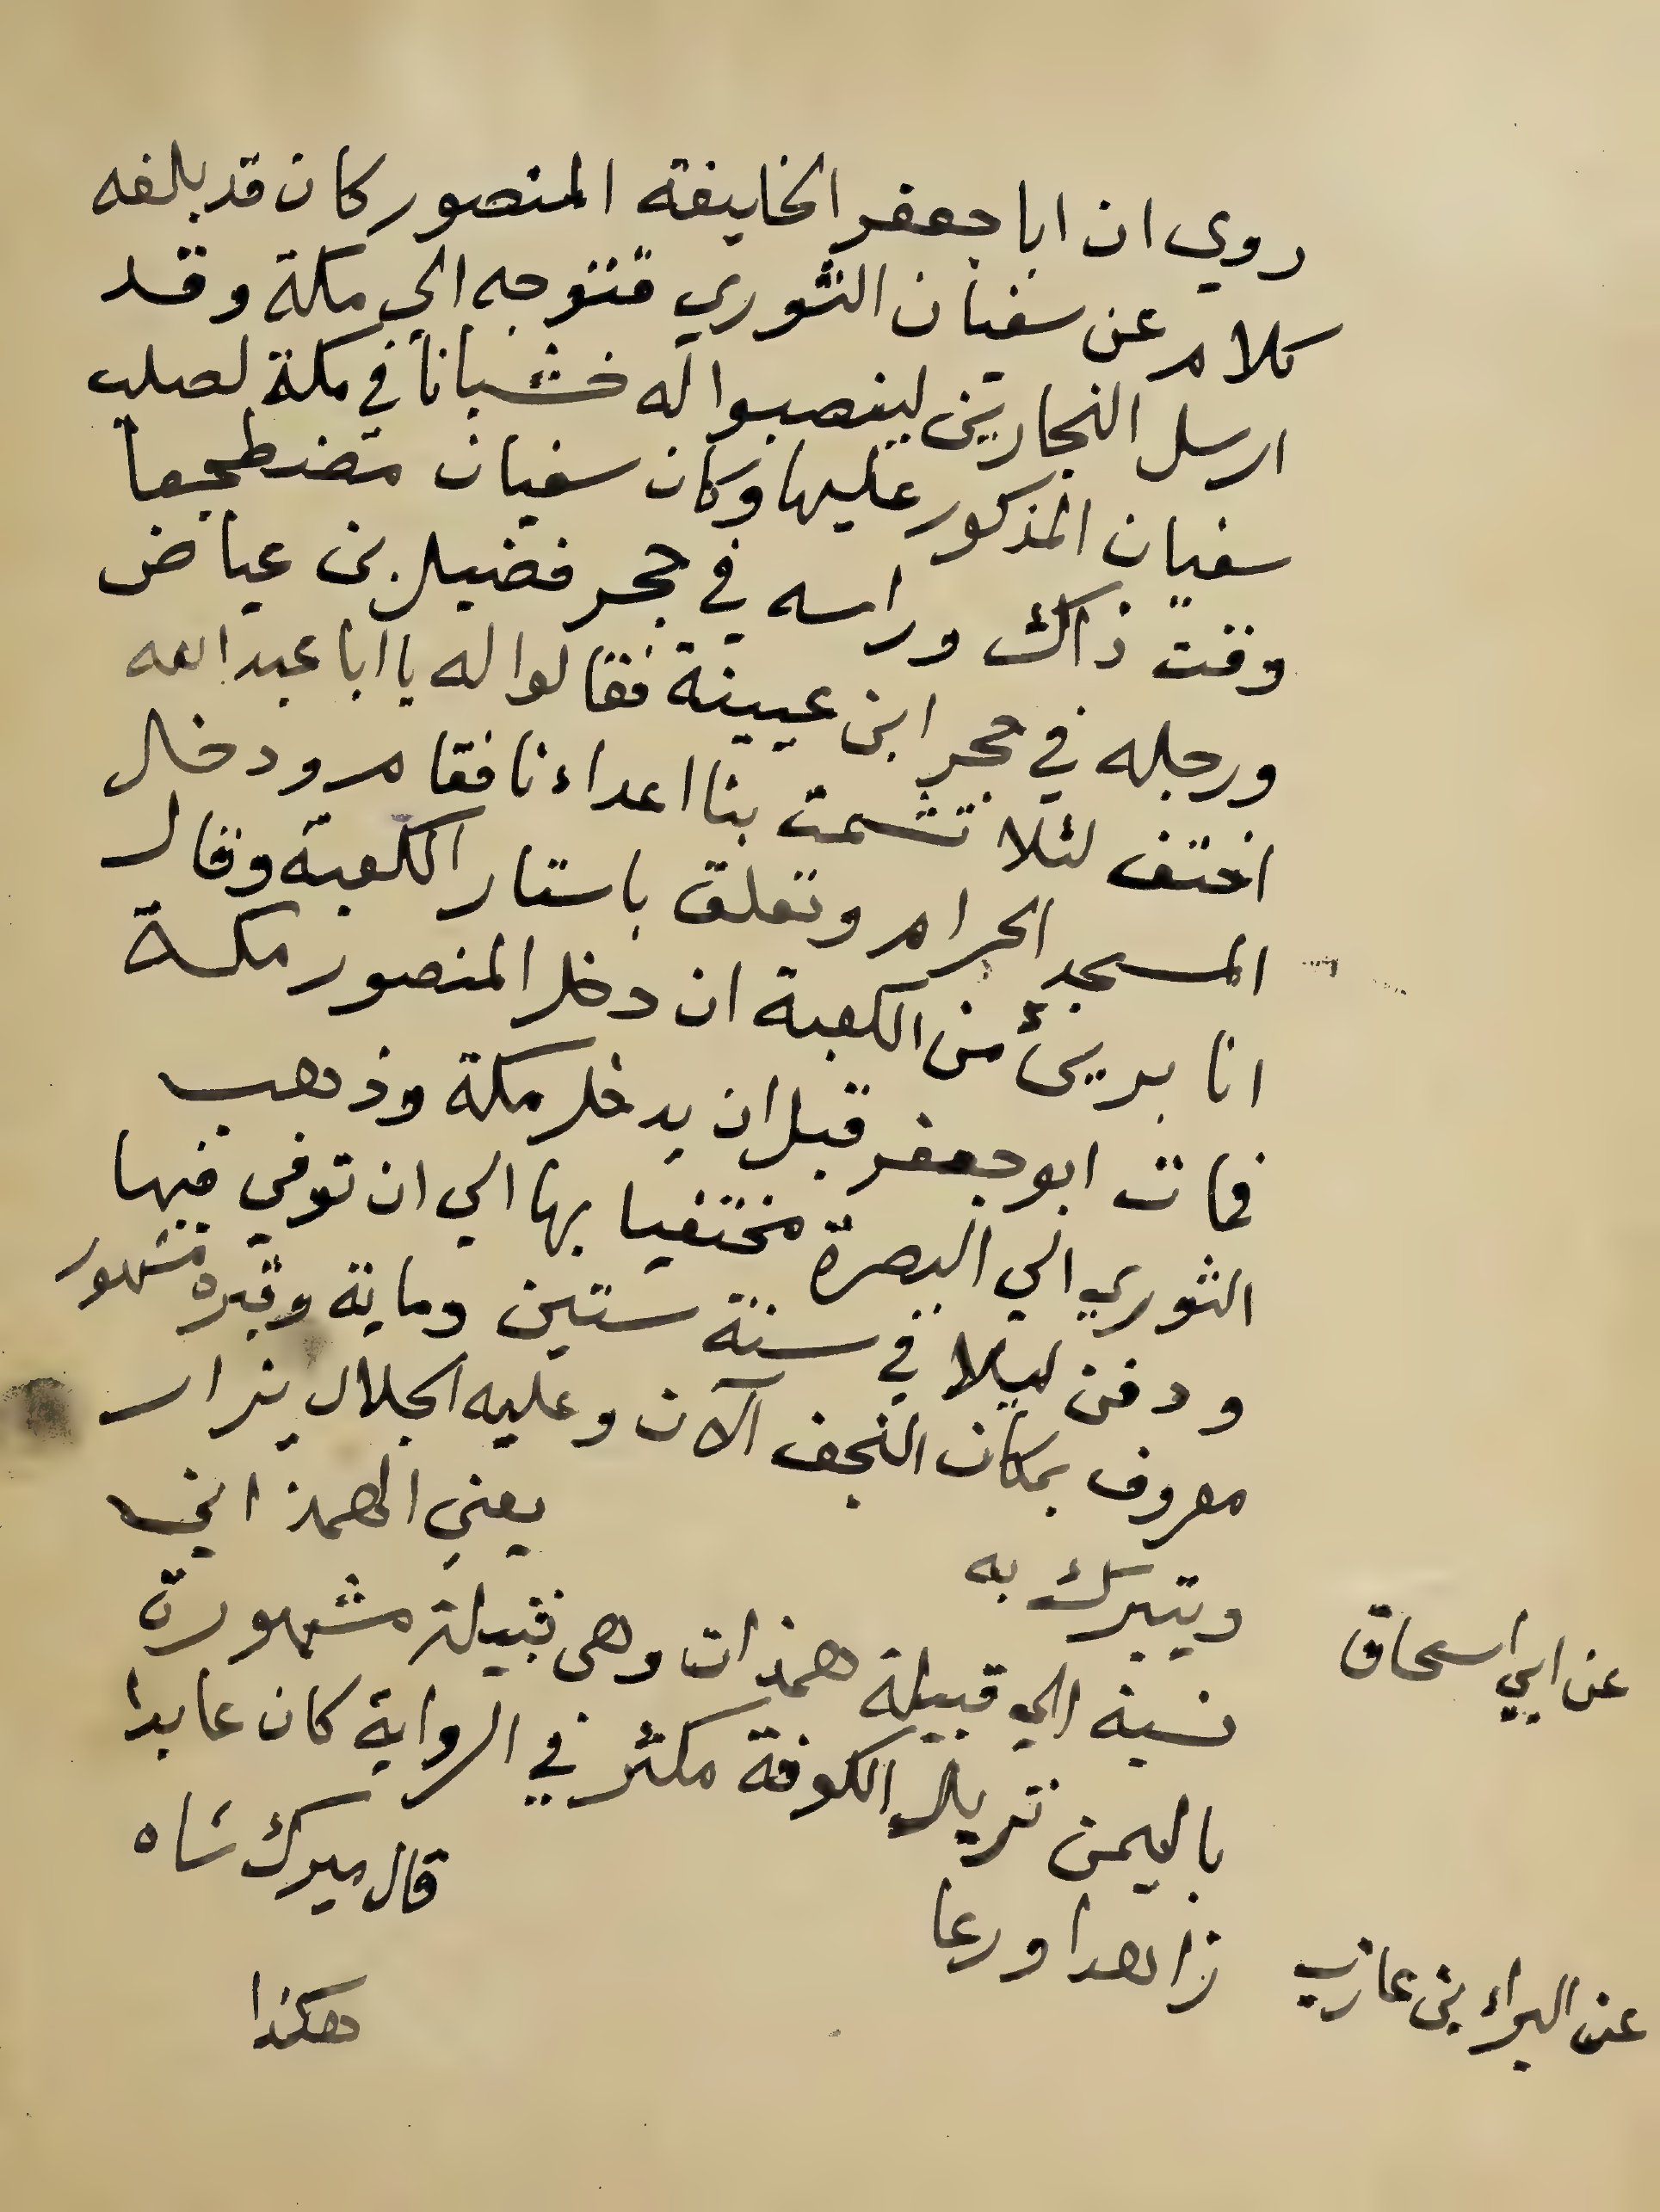 روي ان ابا جعفر الخليفة المنصور كان قد بلغه
كلام عن سفيان الثوري فتوجه الي مكة وقد
ارسل النجارين لينصبوا له خشبانا في مكة لصلب
سفيان المذكور عليها وكان سفيان مضطجعا
وقت ذاك وراسه في حجر فضيل بن عياض
ورجله في حجر ابن عيينة فقالوا له يا ابا عبد الله
اختف لئلا تشمت بنا اعداءنا فقام ودخال
المسجد الحرام وتعلق باستار الكعبة وقال
انا بريئ من الكعبة ان دخل المنصور مكة
فمات ابو جعفر قبل ان يدخل مكة وذهب
الثوري الي البصرة مختفيا بها الي ان توفي فيها
ودفن ليلا في سنة ستين وماية وقبره مشهور
معروف بمكان النجف الآن وعليه الجلال يزار
ويتبرك به
عن ابي اسحاق
يعني الهمذاني
نسبة الي قبيلة همذان وهى قبيلة مشهورة
باليمن نزيل الكوفة مكثر في الرواية كان عابدا
زاهدا ورعا
عن البراء بن عازب
قال ميرك شاه
هكذا